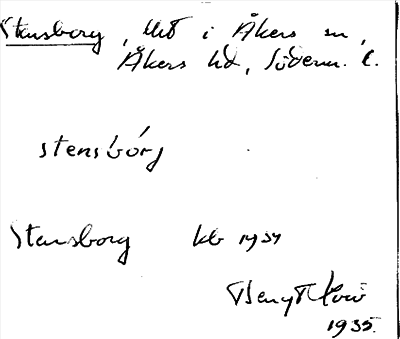 Stensborg, lht i Åkers sn,
Åkers hd, Söderm. l.
stensbórj
Stensborg kb 1934
Bengt Löw
1935.